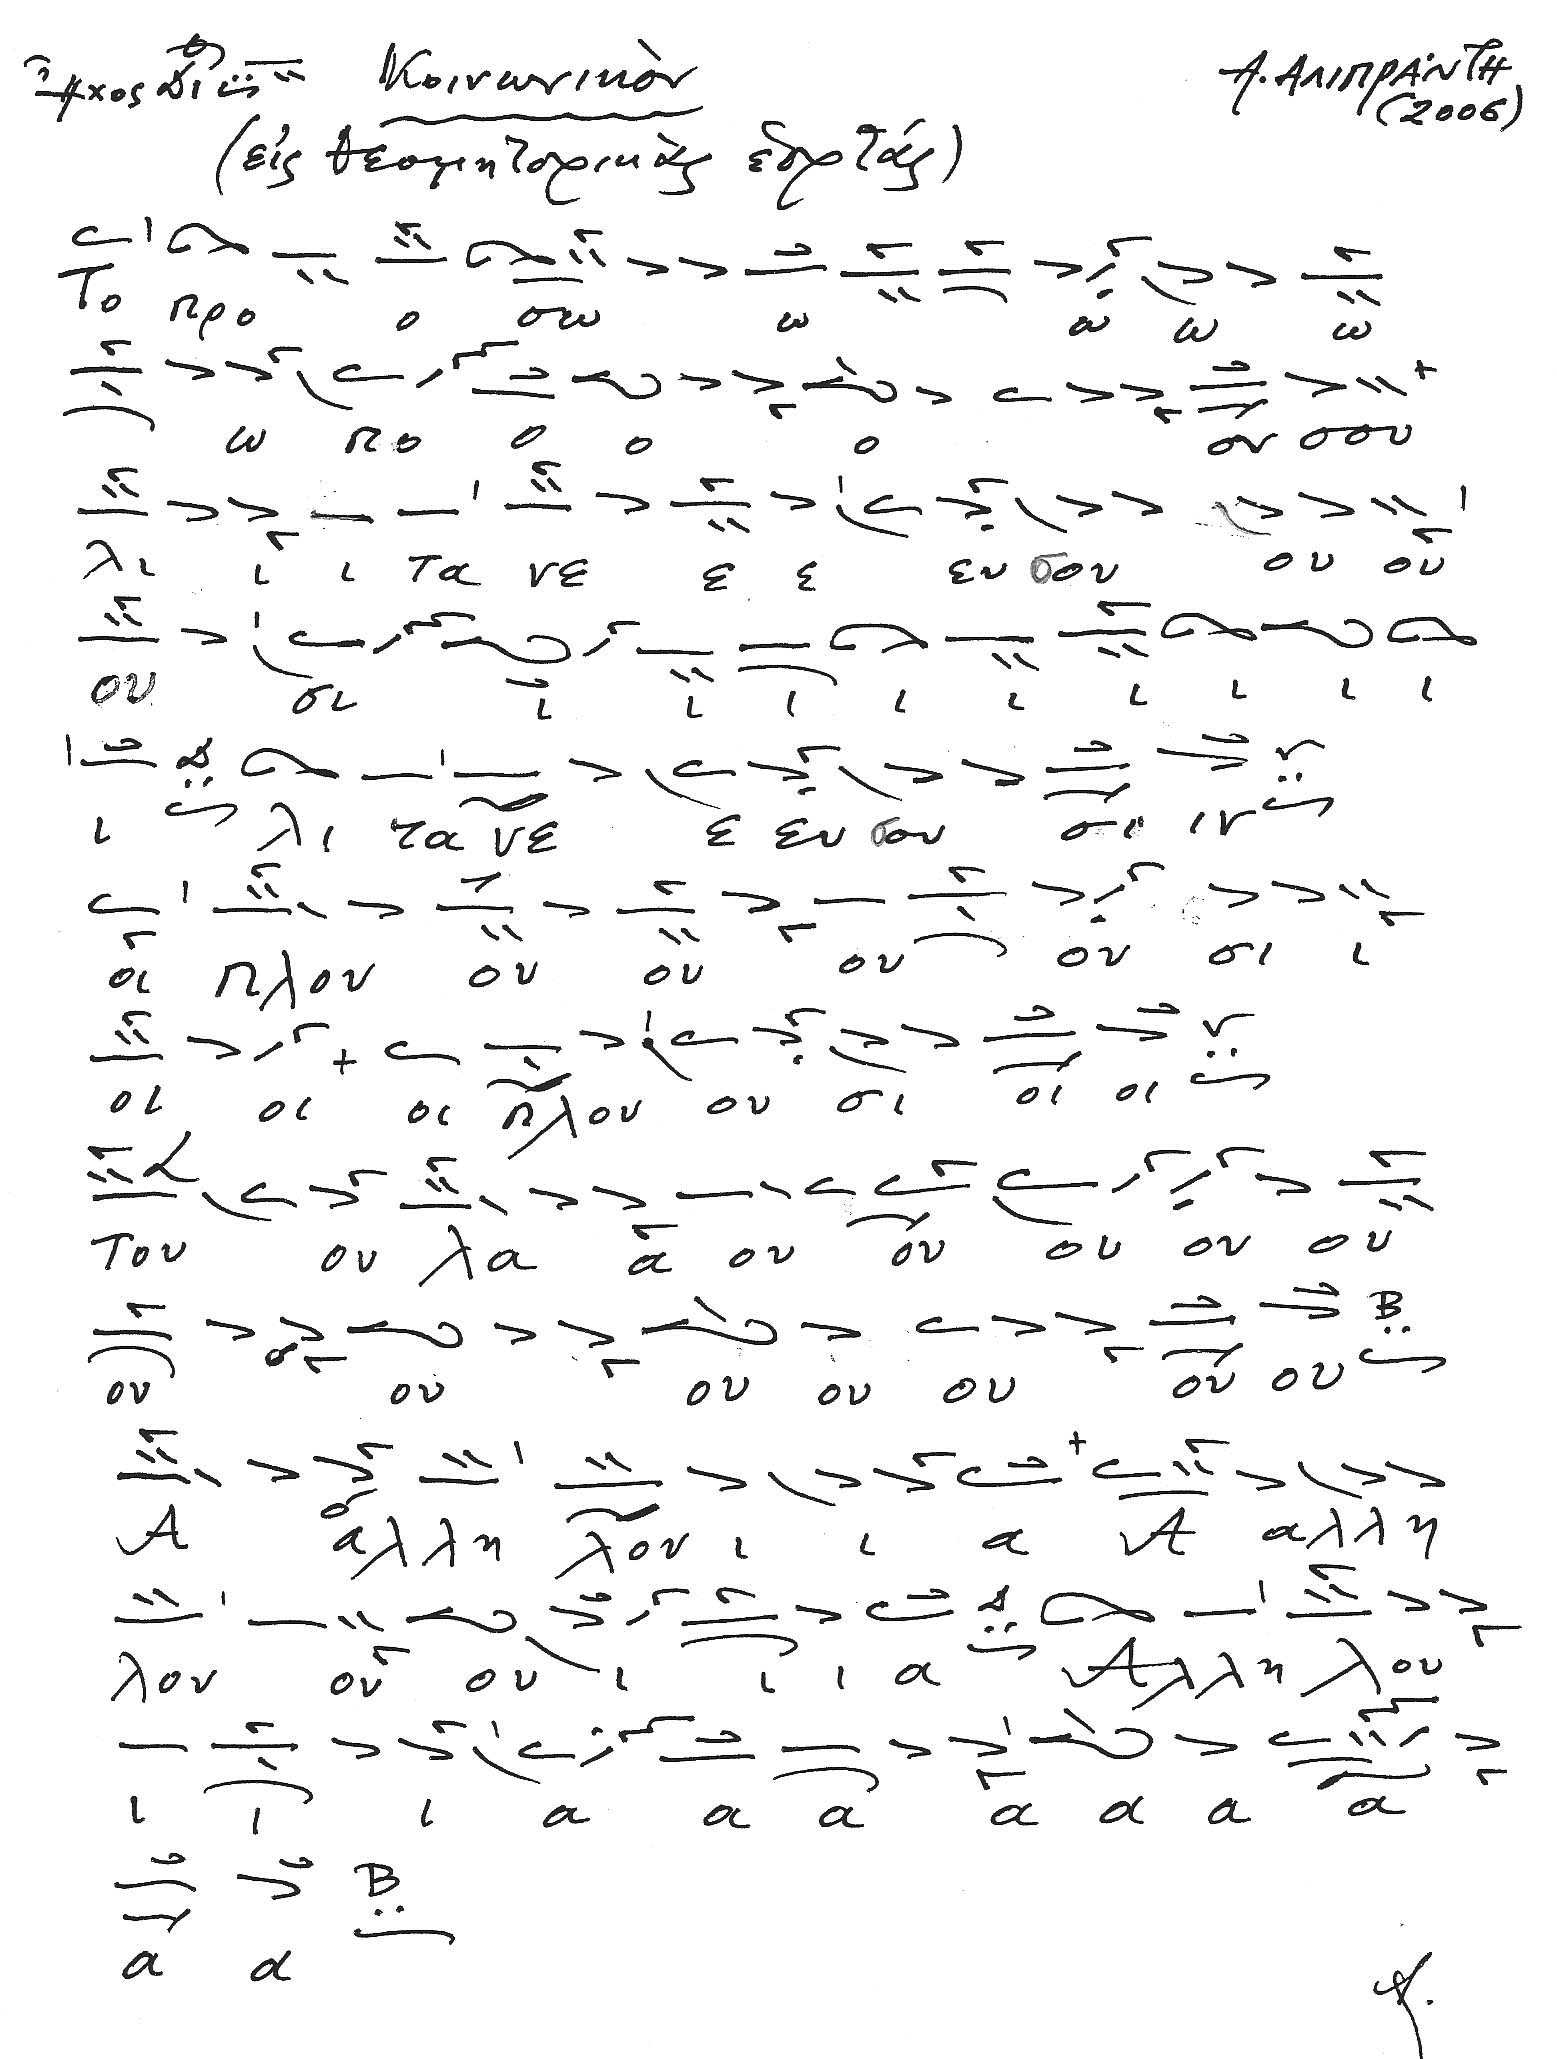 Ἦχος Δι Κοινωνικὸν Α. ΑΛΙΠΡΑΝΤΗ
(εἰς θεομητορικὰς ἑορτάς) (2006)
Το προ ο σω ω ω ω ω
ω πο ο ο ο ον σου
λι ι ι τα νε ε ε ευ σου ου ου
ου σι ι ι ι ι ι ι ι ι ι
ι Δ λι τα νε ε ευ σου σι ιν
οι πλου ου ου ου ου σι ι
οι οι οι πλου ου σι οι οι
Του ου λα α ου ου ου ου ου
ου ου ου ου ου ου ου Β
Α αλλη λου ι ι α Α αλλη
λου ου ου ι ι ι α Δ Αλλη λου
ι ι ι α α α α α α α
α α Β
Α.